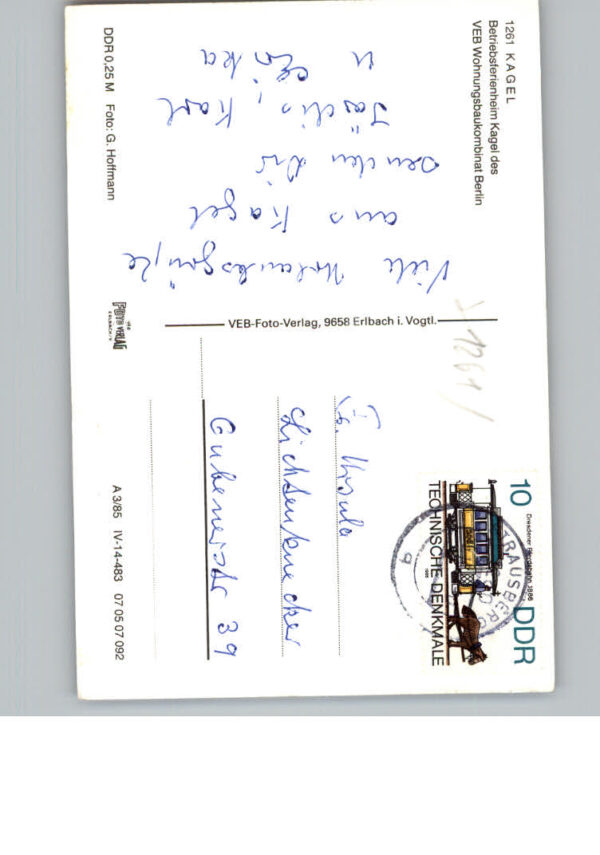 1261 KAGEL
Betriebsferienheim Kagel des
VEB Wohnungsbaukombinat Berlin
Viele Urlaubsgrüße
aus Kagel
senden Dir
Karl
u Erika
DDR 0,25 M Foto: G. Hoffmann
VEB-Foto-Verlag, 9658 Erlbach i. Vogtl.
FOTO VERLAG
1261/
10 DDR
TECHNISCHE DENKMALE
STRAUSBERG
Fr. Ursula
Lichtenknecker
Gubenerstr 39
A 3/85 IV-14-483 07 05 07 092